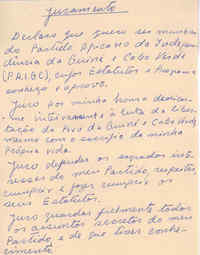 Juramento
Declaro que quero ser membro
do Partido Africano da Indepen-
dência da Guiné e Cabo Verde
(P.A.I.G.C), cujos Estatutos e Programa
conheço e aprovo.
Juro por minha honra dedicar-
me inteiramente à luta de Liber-
tação do Povo da Guiné e Cabo Verde
mesmo com o sacrifício da minha
própria vida.
Juro defender os sagrados inte-
resses do meu Partido, respeitar
cumprir e fazer cumprir os
seus Estatutos.
Juro guardar fielmente todos
os assuntos secretos do meu
Partido, e de que tiver conhe-
cimento